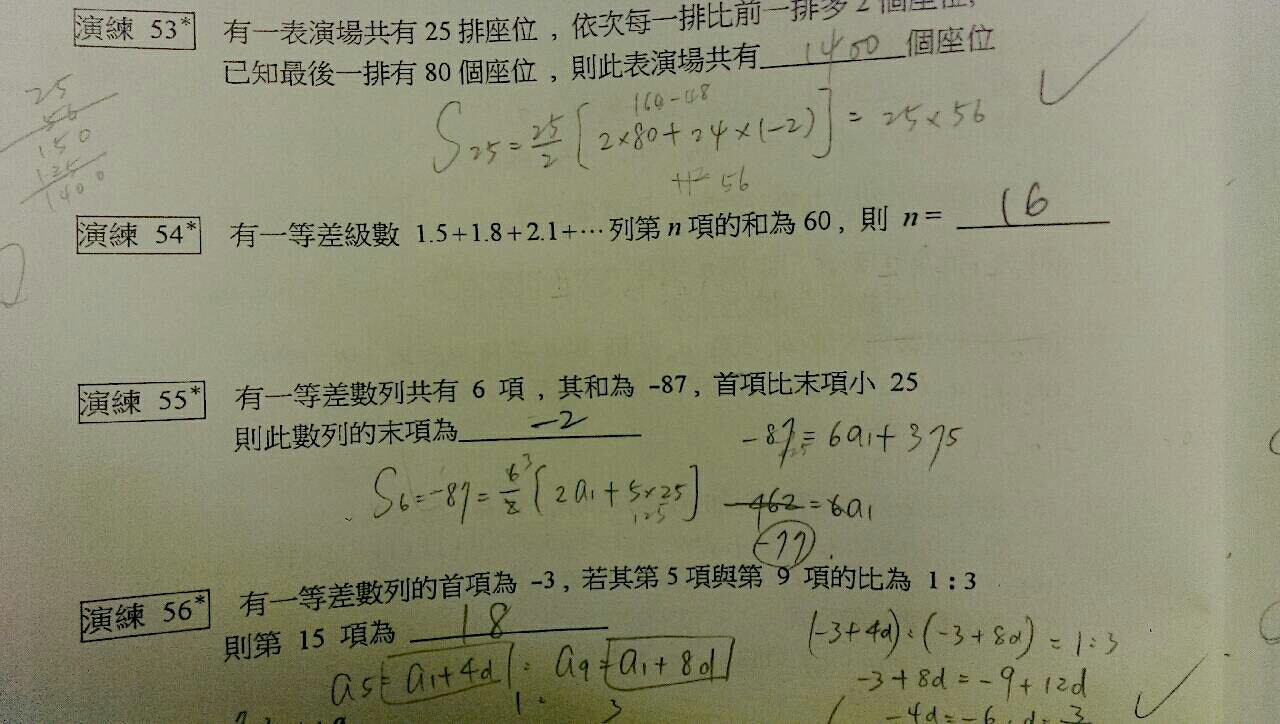 演練 53* 有一表演場共有 25 排座位，依次每一排比前一排多 2 個座位，
已知最後一排有 80 個座位，則此表演場共有 1400 個座位
25
56
150
125
1400
160-48
S25 = 25/2 [2×80+24×(-2)] = 25×56
112 56
演練 54* 有一等差級數 1.5+1.8+2.1+⋯列第 n 項的和為 60，則 n = 16
演練 55* 有一等差數列共有 6 項，其和為 -87，首項比末項小 25
則此數列的末項為 -2
-87 = 6a1 + 375
S6 = -87 = 6/2 3 [2a1 + 5×25]
125
-462 = 6a1
-77
演練 56* 有一等差數列的首項為 -3，若其第 5 項與第 9 項的比為 1：3
則第 15 項為 18
(-3+4d):(-3+8d) = 1:3
a5 = a1+4d : a9 = a1+8d
-3+8d = -9+12d
1 : 3
-4d = -6